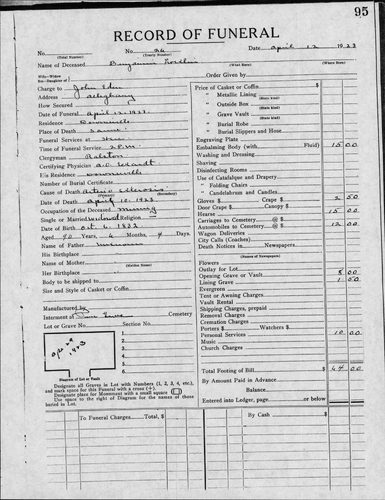 95
RECORD OF FUNERAL
No. No. 26 Date April 12 1923
(Total Number) (Yearly Number)
Name of Deceased Benjamin
Wife—Widow
Son—Daughter of (What Name) (Where Born)
Charge to John Eden
Address Alleghany
How Secured
Date of Funeral April 12 1923
Residence Downieville
Place of Death Same
Funeral Services at
Time of Funeral Service 2 P.M.
Clergyman Ralston
Certifying Physician
His Residence Downieville
Number of Burial Certificate
Cause of Death Arterio Sclerosis
(Primary) (Secondary)
Date of Death April 10, 1923
Occupation of the Deceased Mining
Single or Married Widowed Religion
Date of Birth Oct. 6, 1832
Aged 90 Years, 6 Months, 4 Days
Name of Father Unknown
His Birthplace
Name of Mother
(Maiden Name)
Her Birthplace
Body to be shipped to
Size and Style of Casket or Coffin
Manufactured by
Interment at Cemetery
Lot or Grave No. Section No.
1.
2.
3.
4.
5.
6.
Diagram of Lot or Vault
Designate all Graves in Lot with Numbers (1, 2, 3, 4, etc.),
and mark space for this Funeral with a cross (+).
Designate place for Monument with a small square
Use space to the right of Diagram for names of those
buried in Lot.
Order Given by
Price of Casket or Coffin
" Metallic Lining
(State kind)
" Outside Box
(State kind)
" Grave Vault
(State kind)
" Burial Robe
(State kind)
" Burial Slippers and Hose
Engraving Plate
Embalming Body (with Fluid) 15 00
Washing and Dressing
Shaving
Disinfecting Rooms
Use of Catafalque and Drapery
" Folding Chairs
" Candelabrum and Candles
Gloves $ Crape $ 2 50
Door Crape $ Canopy $
Hearse 15 00
Carriages to Cemetery @ $
Automobiles to Cemetery @ $ 12 00
Wagon Deliveries
City Calls (Coaches)
Death Notices in Newspapers
(Names of Newspapers)
Flowers
Outlay for Lot
Opening Grave or Vault 8 00
Lining Grave 1 50
Evergreen
Tent or Awning Charges
Vault Rental
Shipping Charges, prepaid
Removal Charges
Cremation Charges
Porters $ Watchers $
Personal Services 10 00
Music
Church Charges
Total Footing of Bill $ 64 00
By Amount Paid in Advance
Balance
Entered into Ledger, page or below.
To Funeral Charges Total, $ By Cash $